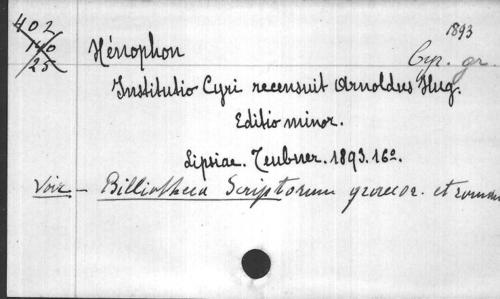 402
140
25
1893
Xénophon
Cyr. gr.
Institutio Cyri recensuit Arnoldus Hug.
Editio minor.
Lipsiae. Teubner. 1893. 16o.
Voir - Bibliotheca Scriptorum graecor. et roman